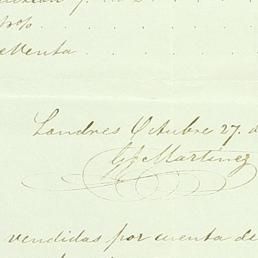 %
Venta
Londres Octubre 27. d
GJ Martinez
vendidas por cuenta de